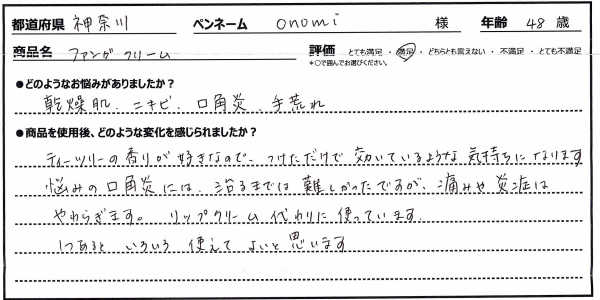 都道府県 神奈川 ペンネーム onomi 様 年齢 48 歳
商品名 ファンガクリーム 評価 とても満足 ・ 満足 ・ どちらとも言えない ・ 不満足 ・ とても不満足
*○で囲んでお選びください。
●どのようなお悩みがありましたか？
乾燥肌、ニキビ、口角炎、手荒れ
●商品を使用後、どのような変化を感じられましたか？
ティーツリーの香りが好きなので、つけただけで効いているような気持ちになります
悩みの口角炎には、治るまでは難しかったですが、痛みや炎症は
やわらぎます。 リップクリーム代わりに使っています。
1つあると いろいろ 使えて よいと思います